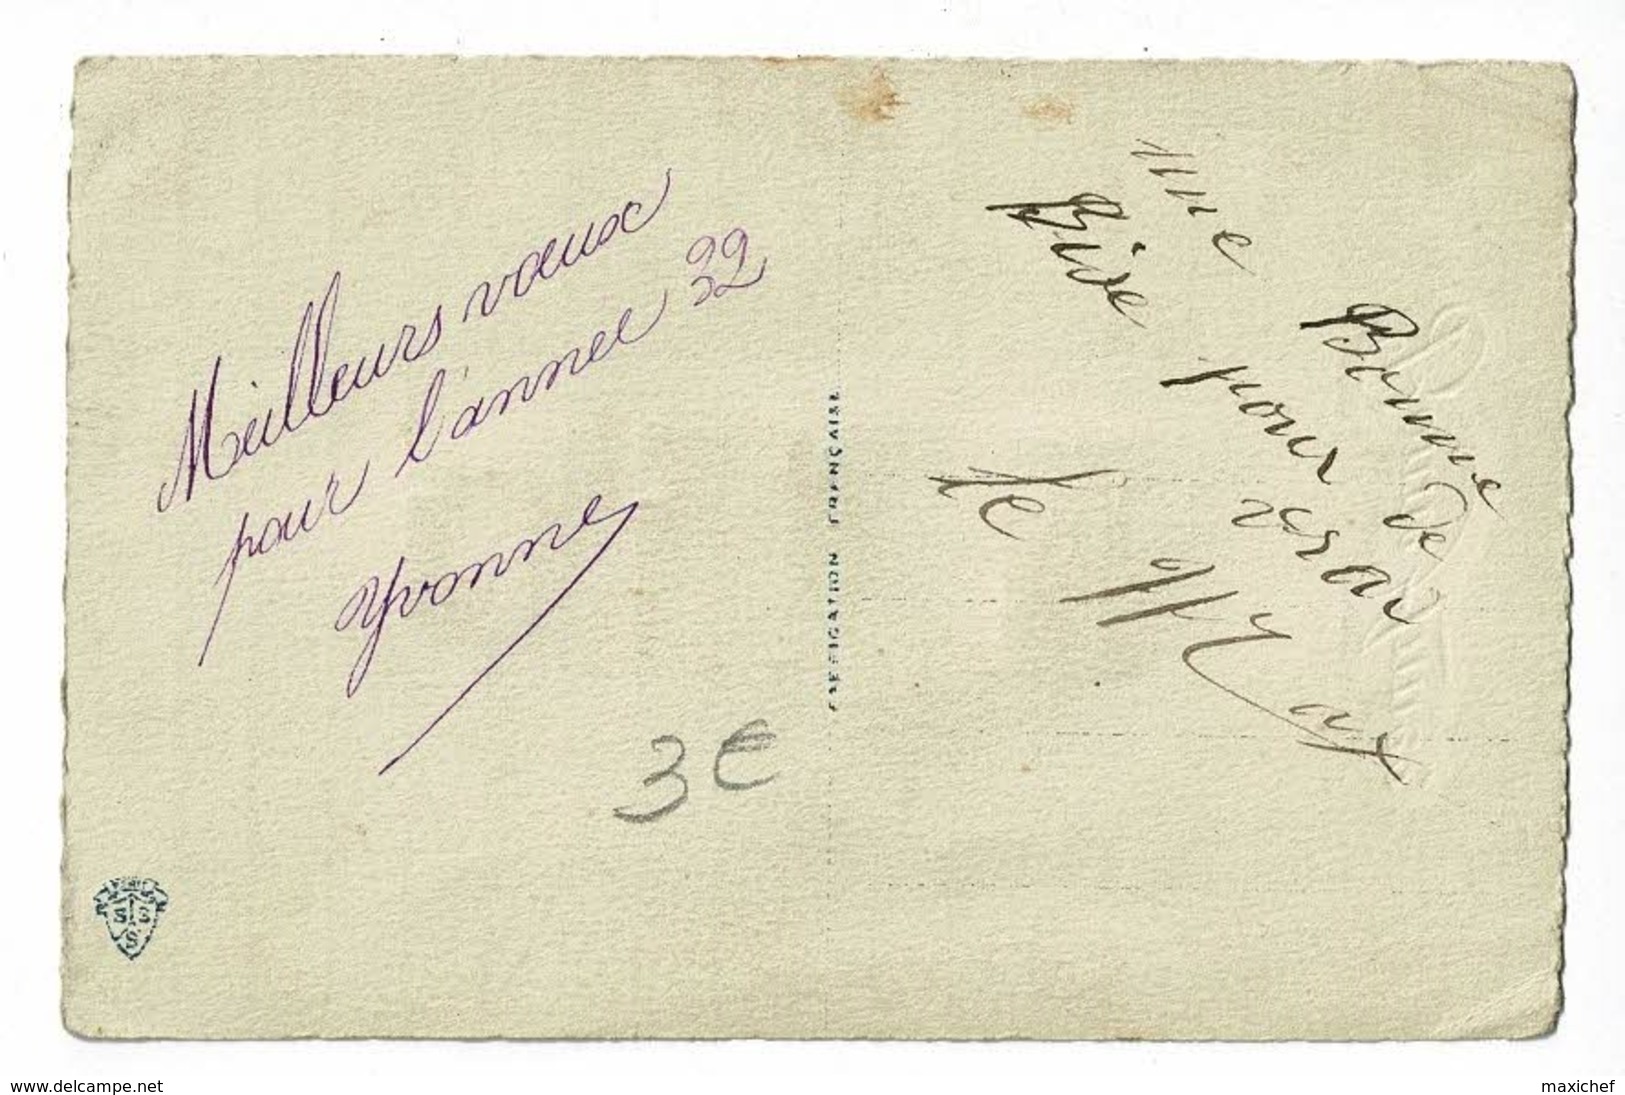 Meilleurs vœux
pour l'année 32
Yvonne
3€
FABRICATION FRANÇAISE
une Bonne
Bise de
pour
le
www.delcampe.net
maxichef